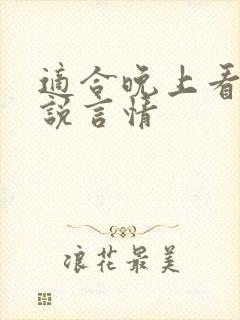 適合晚上看
說言情
浪花最美